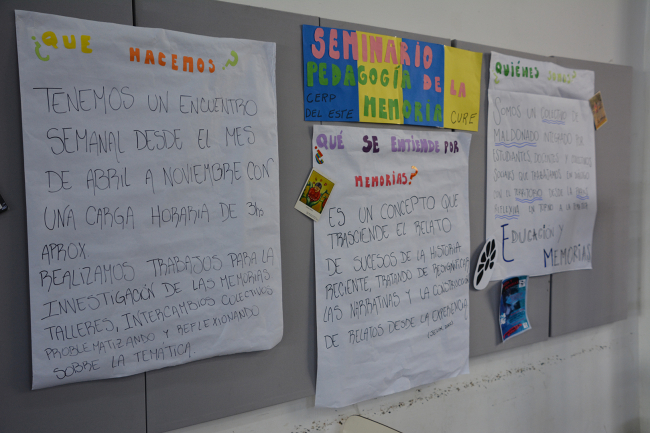 ¿QUE HACEMOS?
TENEMOS UN ENCUENTRO
SEMANAL DESDE EL MES
DE ABRIL A NOVIEMBRE CON
UNA CARGA HORARIA DE 3hs
APROX
REALIZAMOS TRABAJOS PARA LA
INVESTIGACIÓN DE LAS MEMORIAS
TALLERES, INTERCAMBIOS COLECTIVOS
PROBLEMATIZANDO Y REFLEXIONANDO
SOBRE LA TEMÁTICA.
SEMINARIO
PEDAGOGÍA DE LA
MEMORIA
CERP
DEL ESTE
CURE
¿QUÉ SE ENTIENDE POR
MEMORIAS?
ES UN CONCEPTO QUE
TRASCIENDE EL RELATO
DE SUCESOS DE LA HISTORIA
RECIENTE, TRATANDO DE
LAS NARRATIVAS Y LA CONSTRUCCIÓN
DE RELATOS DESDE LA EXPERIENCIA
¿QUIÉNES SOMOS?
SOMOS UN COLECTIVO DE
MALDONADO INTEGRADO POR
ESTUDIANTES, DOCENTES Y
SOCIALES QUE TRABAJAMOS
EN EL TERRITORIO DESDE LA
REFLEXIVA EN TORNO A LA
EDUCACIÓN Y
MEMORIAS